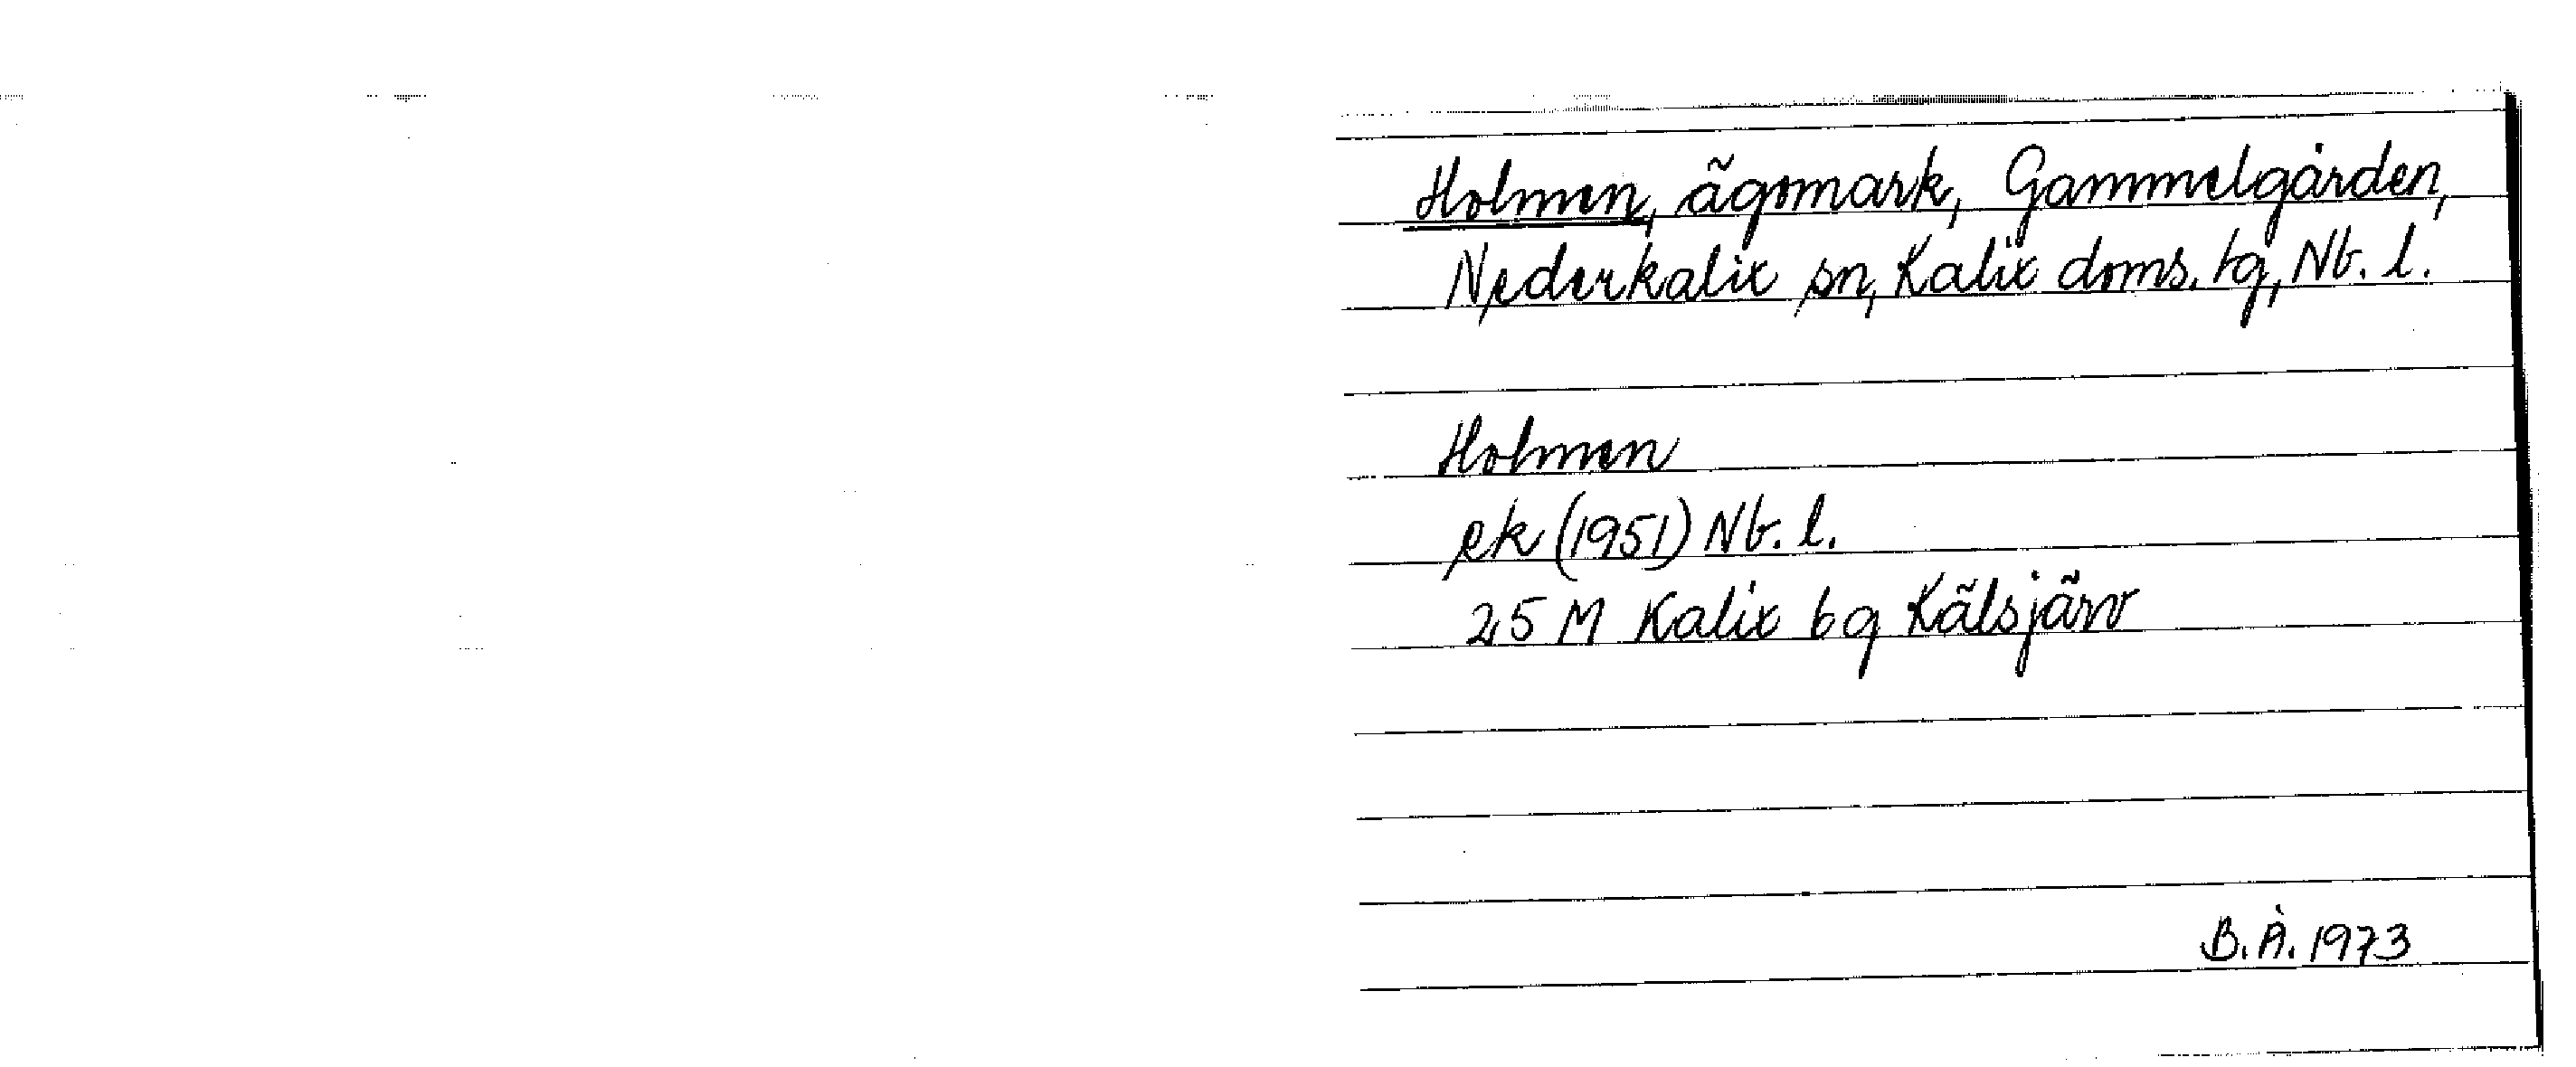 Holmen, ägomark, Gammelgården,
Nederkalix sn, Kalix doms. tg, Nb. l.
Holmen
ek (1951) Nb. l.
25 M Kalix 6 g Kälsjärv
B.Å. 1973